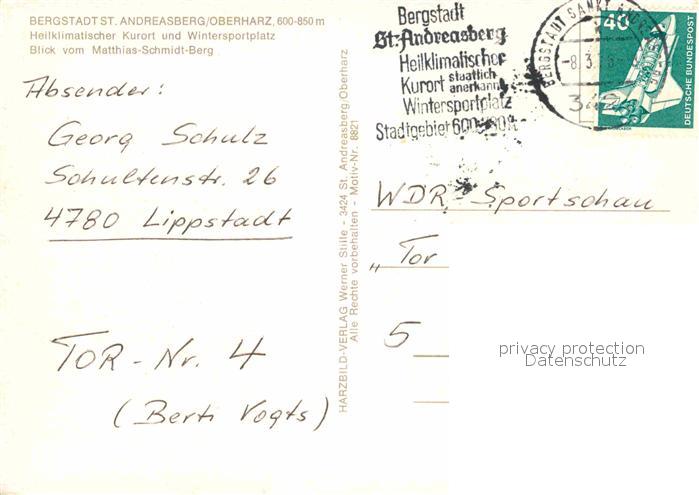 BERGSTADT ST. ANDREASBERG/OBERHARZ, 600-850 m
Heilklimatischer Kurort und Wintersportplatz
Blick vom Matthias-Schmidt-Berg
Absender:
Georg Schulz
Schultenstr. 26
4780 Lippstadt
TOR-Nr. 4
(Berti Vogts)
HARZBILD-VERLAG Werner Stille - 3424 St. Andreasberg/Oberharz
Alle Rechte vorbehalten - Motiv-Nr. 8821
Bergstadt
St. Andreasberg
Heilklimatischer
Kurort staatlich anerkannt
Wintersportplatz
Stadtgebiet 600-
BERGSTADT SANKT
-8.3.
342
40
DEUTSCHE BUNDESPOST
WDR-Sportschau
„Tor
5
privacy protection
Datenschutz